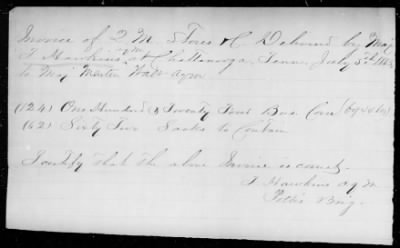 Invoice of Q M Stores &c Delivered by Maj
J Hawkins qm at Chattanooga, Tenn, July 5th 1863
to Maj
(124) One Hundred & Twenty Four Bus Corn
(62) Sixty Two Sacks to Contain
I certify that the above Invoice is correct.
J Hawkins a q m
Brig.